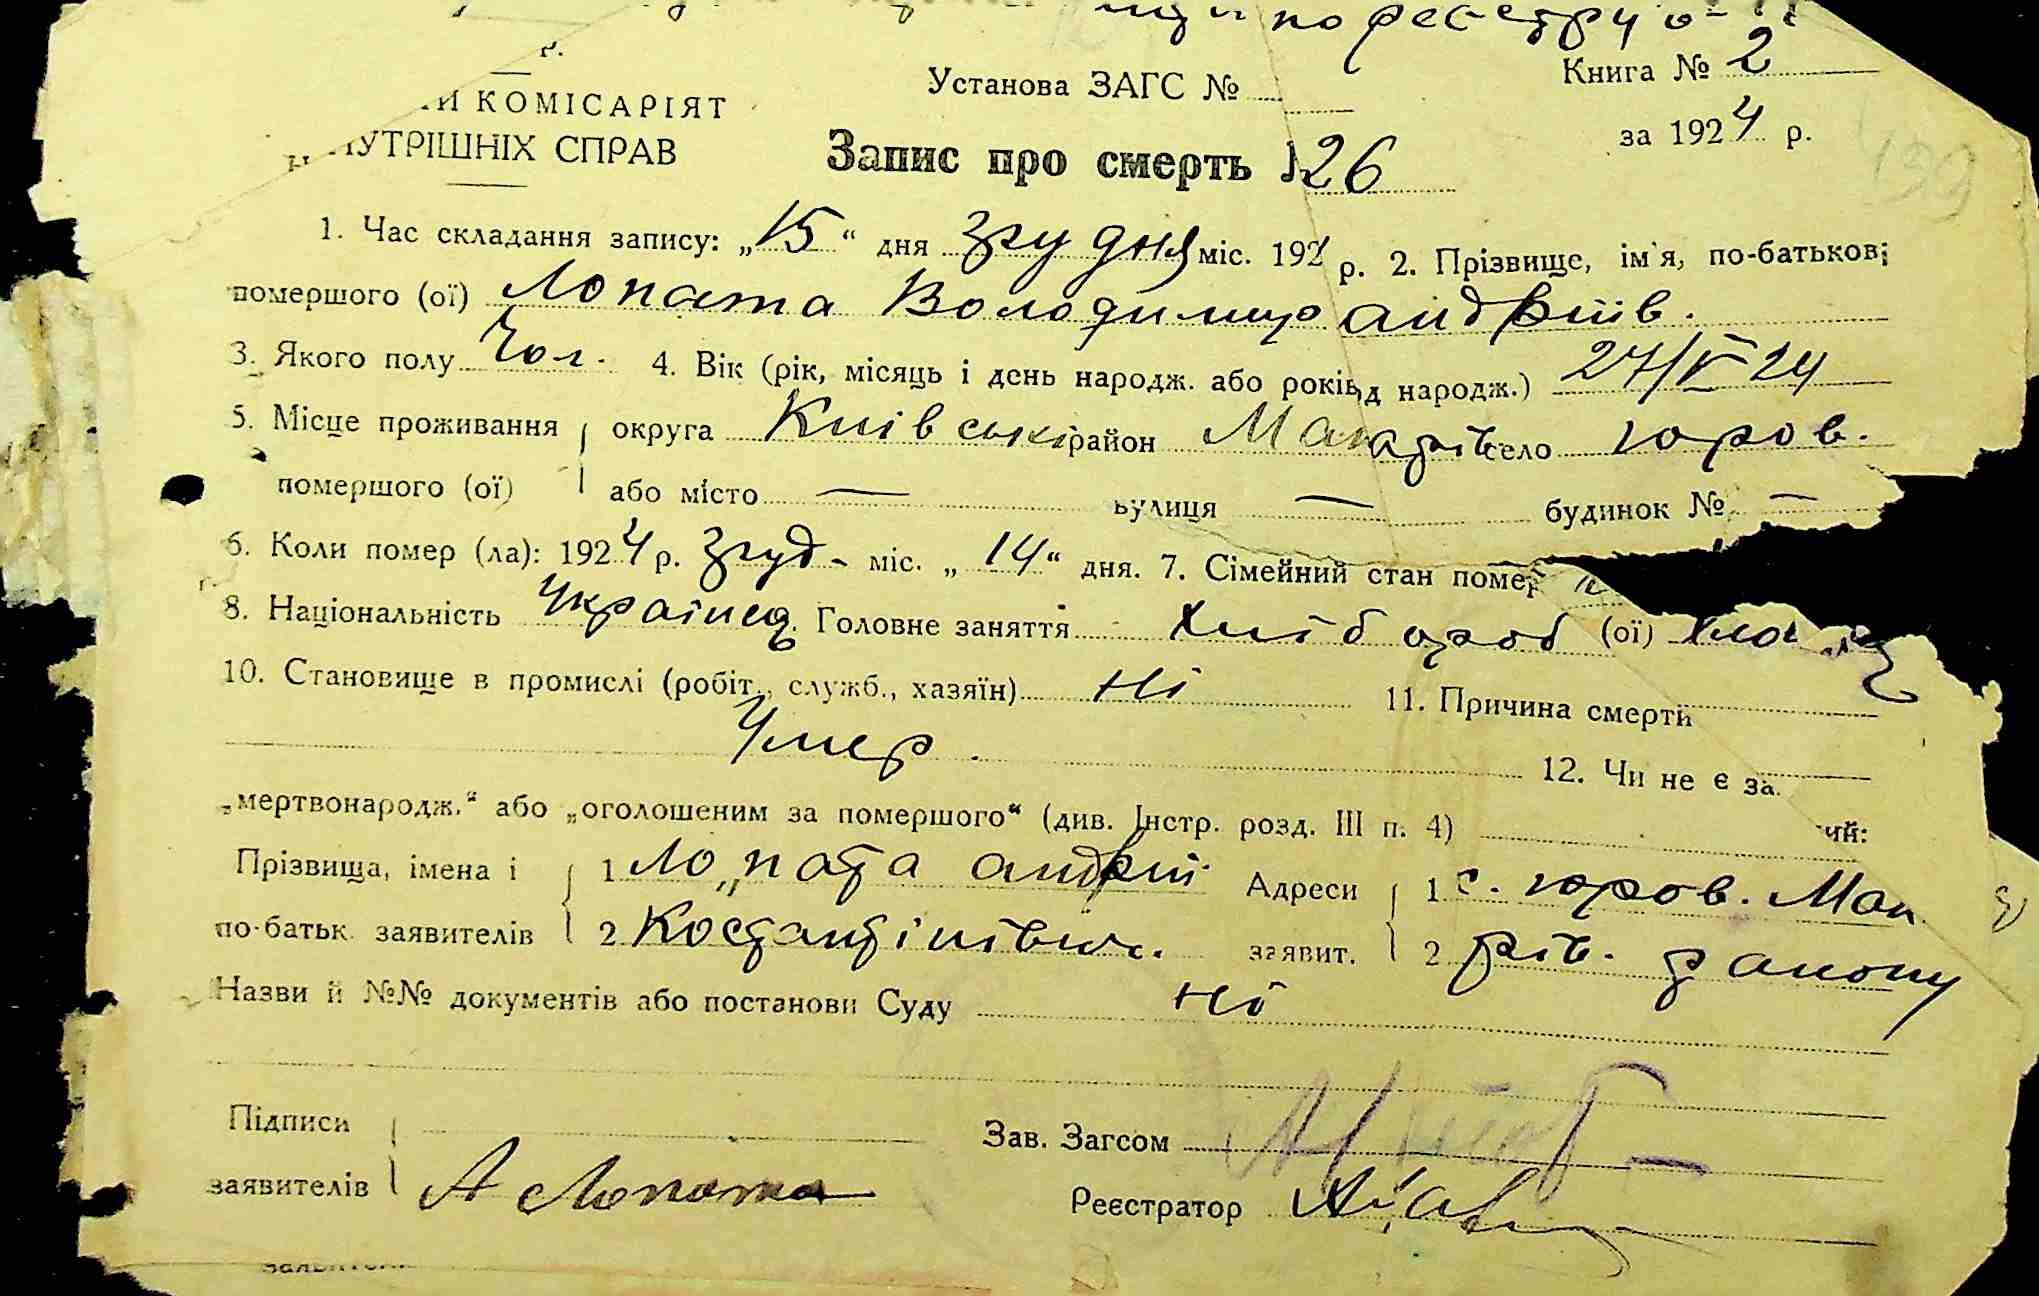 по реєстру
р.
КОМІСАРІЯТ
УТРІШНІХ СПРАВ
Установа ЗАГС №
Книга № 2
за 1924 р.
439
Запис про смерть № 26
1. Час складання запису: „15“ дня грудня міс. 192 р. 2. Прізвище, ім'я, по-батькові
помершого (ої) Лопата Володимир Андріїв.
3. Якого полу Чол. 4. Вік (рік, місяць і день народж. або років д народж.) 27/V 24
5. Місце проживання округа Київськ район Макарів село Юров.
помершого (ої) або місто — вулиця — будинок № —
6. Коли помер (ла): 1924 р. груд- міс. „14“ дня. 7. Сімейний стан помер
8. Національність Українец. Головне заняття Хліборob (ої)
10. Становище в промислі (робіт., служб., хазяїн) Ні 11. Причина смерти
Умер.
12. Чи не є за
„мертвонародж.“ або „оголошеним за помершого“ (див. Інстр. розд. III п. 4) ий:
Прізвища, імена і 1 Лопата Андрій Адреси 1 с. Юров. Мак
по-батьк. заявителів 2 Костантінівич. заявит. 2 рів. району
Назви й №№ документів або постанови Суду Ні
Підписи
заявителів А Лопата
Зав. Загсом
Реєстратор